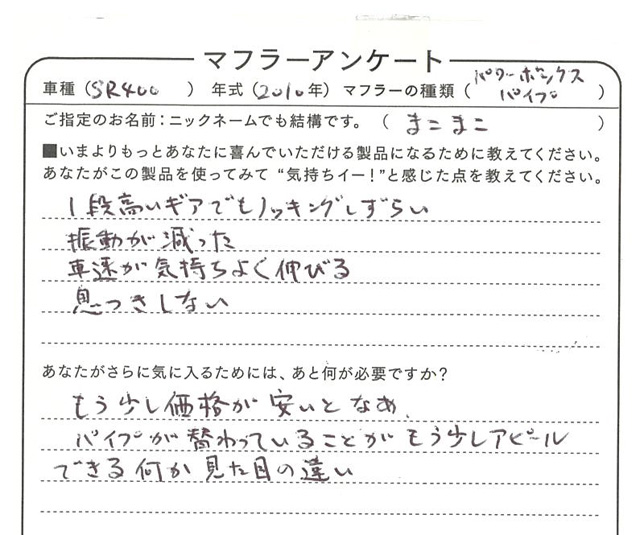 マフラーアンケート
車種（SR400　　）　年式（2010年）　マフラーの種類（パワーボックスパイプ　）
ご指定のお名前：ニックネームでも結構です。（　まこまこ　　　　）
■いまよりもっとあなたに喜んでいただける製品になるために教えてください。
あなたがこの製品を使ってみて“気持ちイー！”と感じた点を教えてください。
1段高いギアでもノッキングしずらい
振動が減った
車速が気持ちよく伸びる
息つきしない
あなたがさらに気に入るためには、あと何が必要ですか？
もう少し価格が安いとなぁ、
パイプが替わっていることがもう少しアピール
できる何か見た目の違い